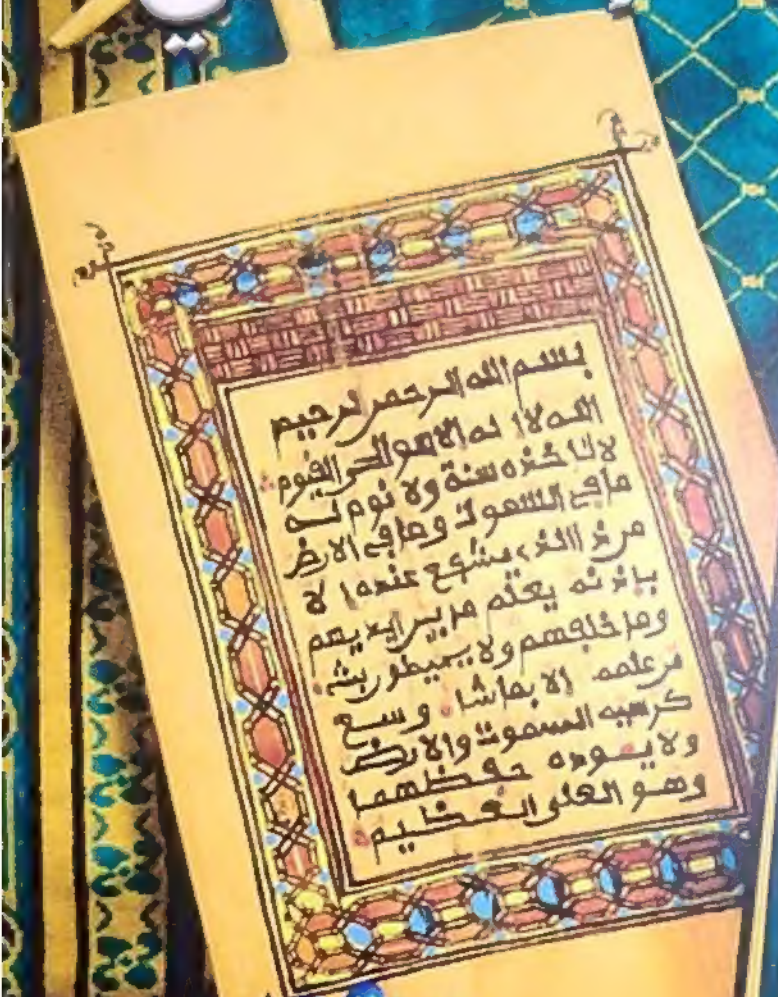 بسم الله الرحمن الرحيم
الله لا اله الا هو الحي القيوم
لا تاخذه سنة ولا نوم له
ما في السموت وما في الارض
من ذا الذي يشفع عنده ا لا
باذنه يعلم ما بين ايديهم
وما خلفهم ولا يحيطون بشء
من علمه الا بما شا وسع
كرسيه السموت والارض
ولا يـوده حفظهما
وهو العلي العظيم